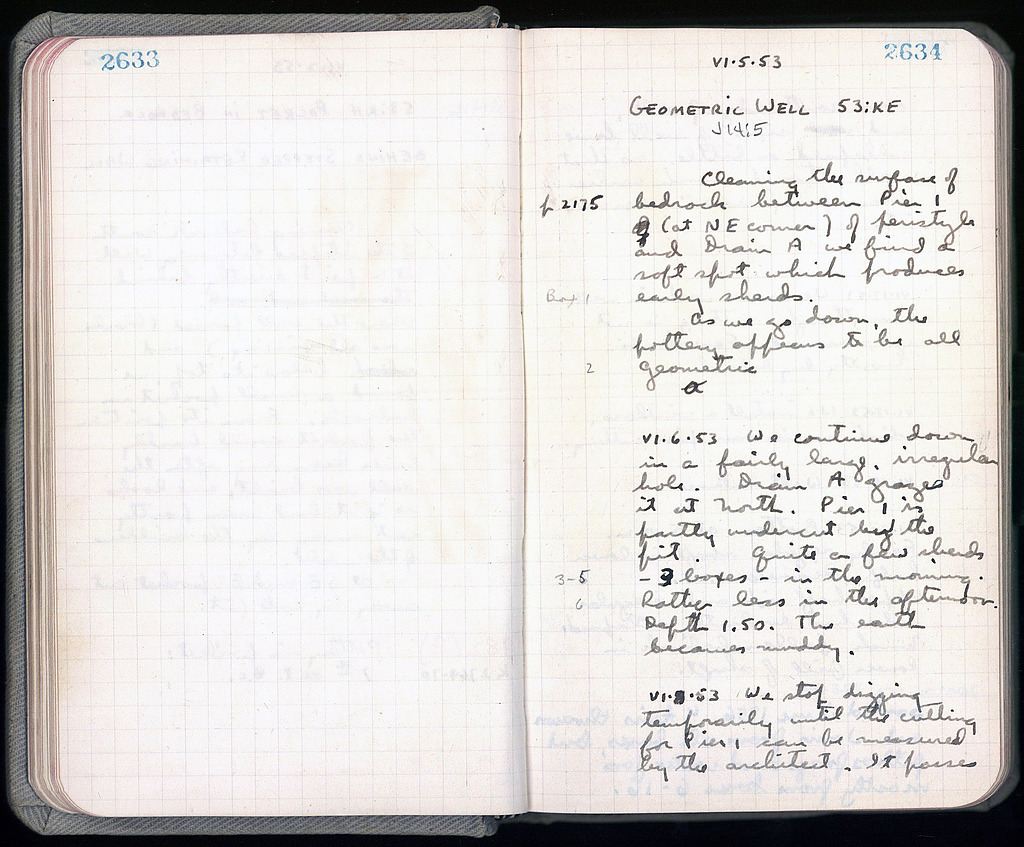 2633
2634
VI.5.53
GEOMETRIC WELL 53:KE
J14:5
Cleaning the surface of
p 2175 bedrock between Pier 1
(at NE corner) of peristyle
and Drain A we find a
soft spot which produces
Box 1 early sherds.
As we go down, the
pottery appears to be all
2 Geometric
VI.6.53 We continue down
in a fairly large, irregular
hole. Drain A grazes
it at North. Pier 1 is
partly undercut by the
pit. Quite a few sherds
3-5 - 3 boxes - in the morning.
6 Rather less in the afternoon.
Depth 1.50. The earth
becomes muddy.
VI.8.53 We stop digging
temporarily until the cutting
for Pier 1 can be measured
by the architect. It passes